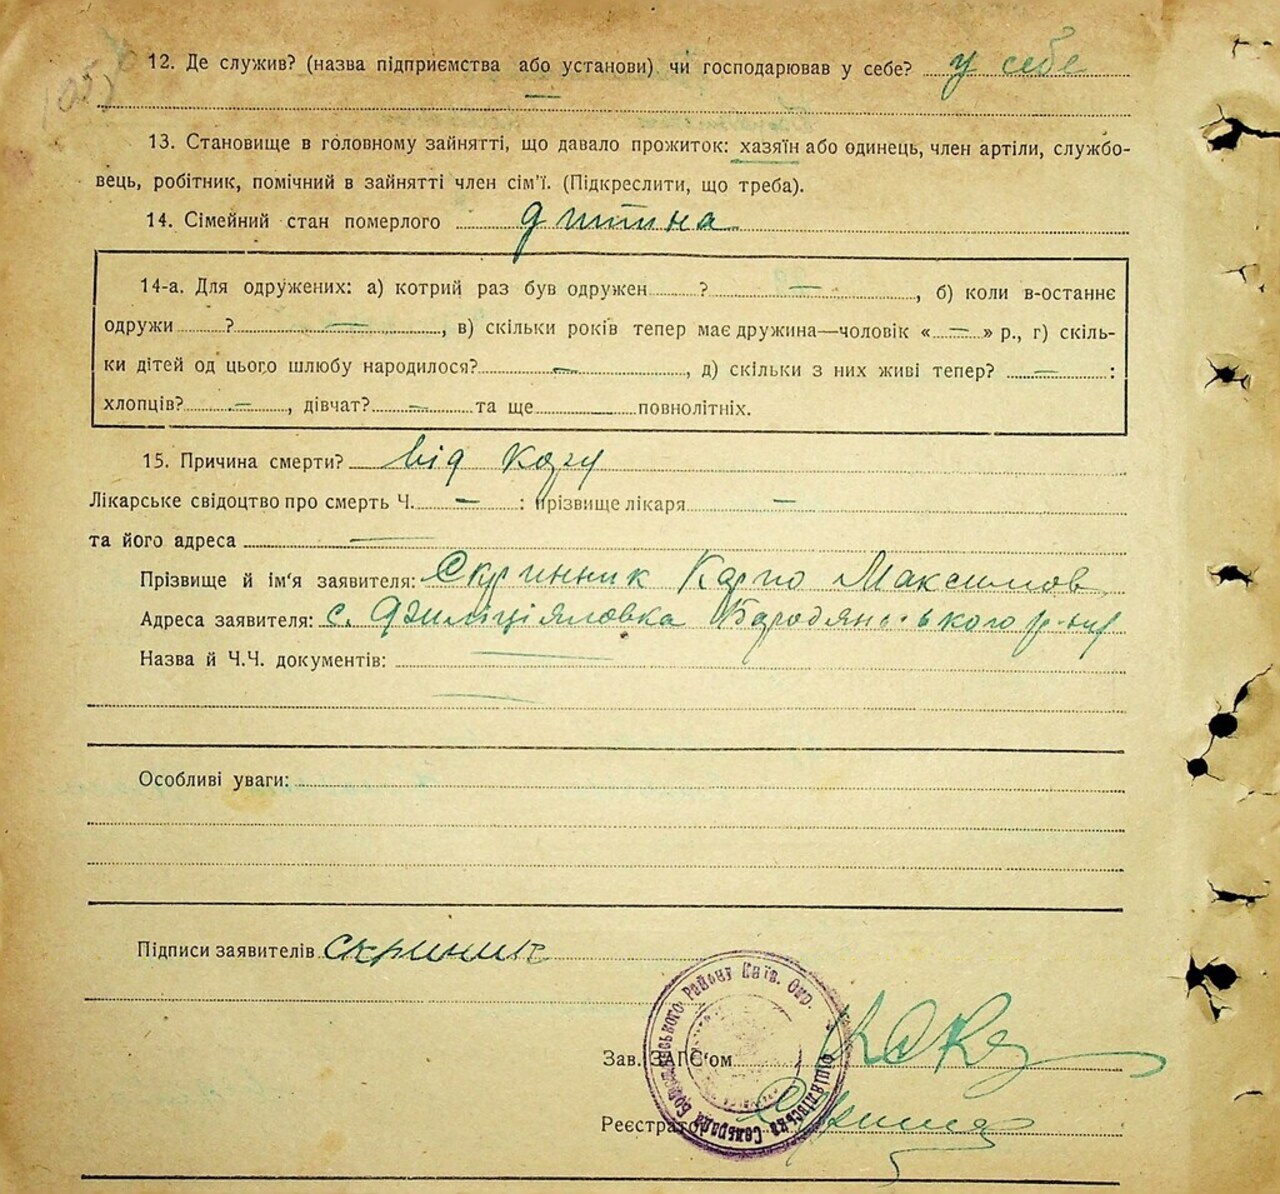 12. Де служив? (назва підприємства або установи) чи господарював у себе? у себе
13. Становище в головному зайнятті, що давало прожиток: хазяїн або одинець, член артіли, службо-
вець, робітник, помічний в зайнятті член сім'ї. (Підкреслити, що треба).
14. Сімейний стан померлого дитина
14-а. Для одружених: а) котрий раз був одружен ? —, б) коли в-останнє
одружи ? —, в) скільки років тепер має дружина—чоловік « — » р., г) скіль-
ки дітей од цього шлюбу народилося? —, д) скільки з них живі тепер? — :
хлопців? —, дівчат? — та ще повнолітніх.
15. Причина смерти? від кору
Лікарське свідоцтво про смерть Ч. — : прізвище лікаря —
та його адреса —
Прізвище й ім'я заявителя: Скринник Карпо Максимов
Адреса заявителя: с. Бородянського р-ну
Назва й Ч.Ч. документів: —
—
Особливі уваги:
Підписи заявителів скриник
Районову Київ. Окр.
Сельрада
Зав. ЗАГС'ом
Реєстратор